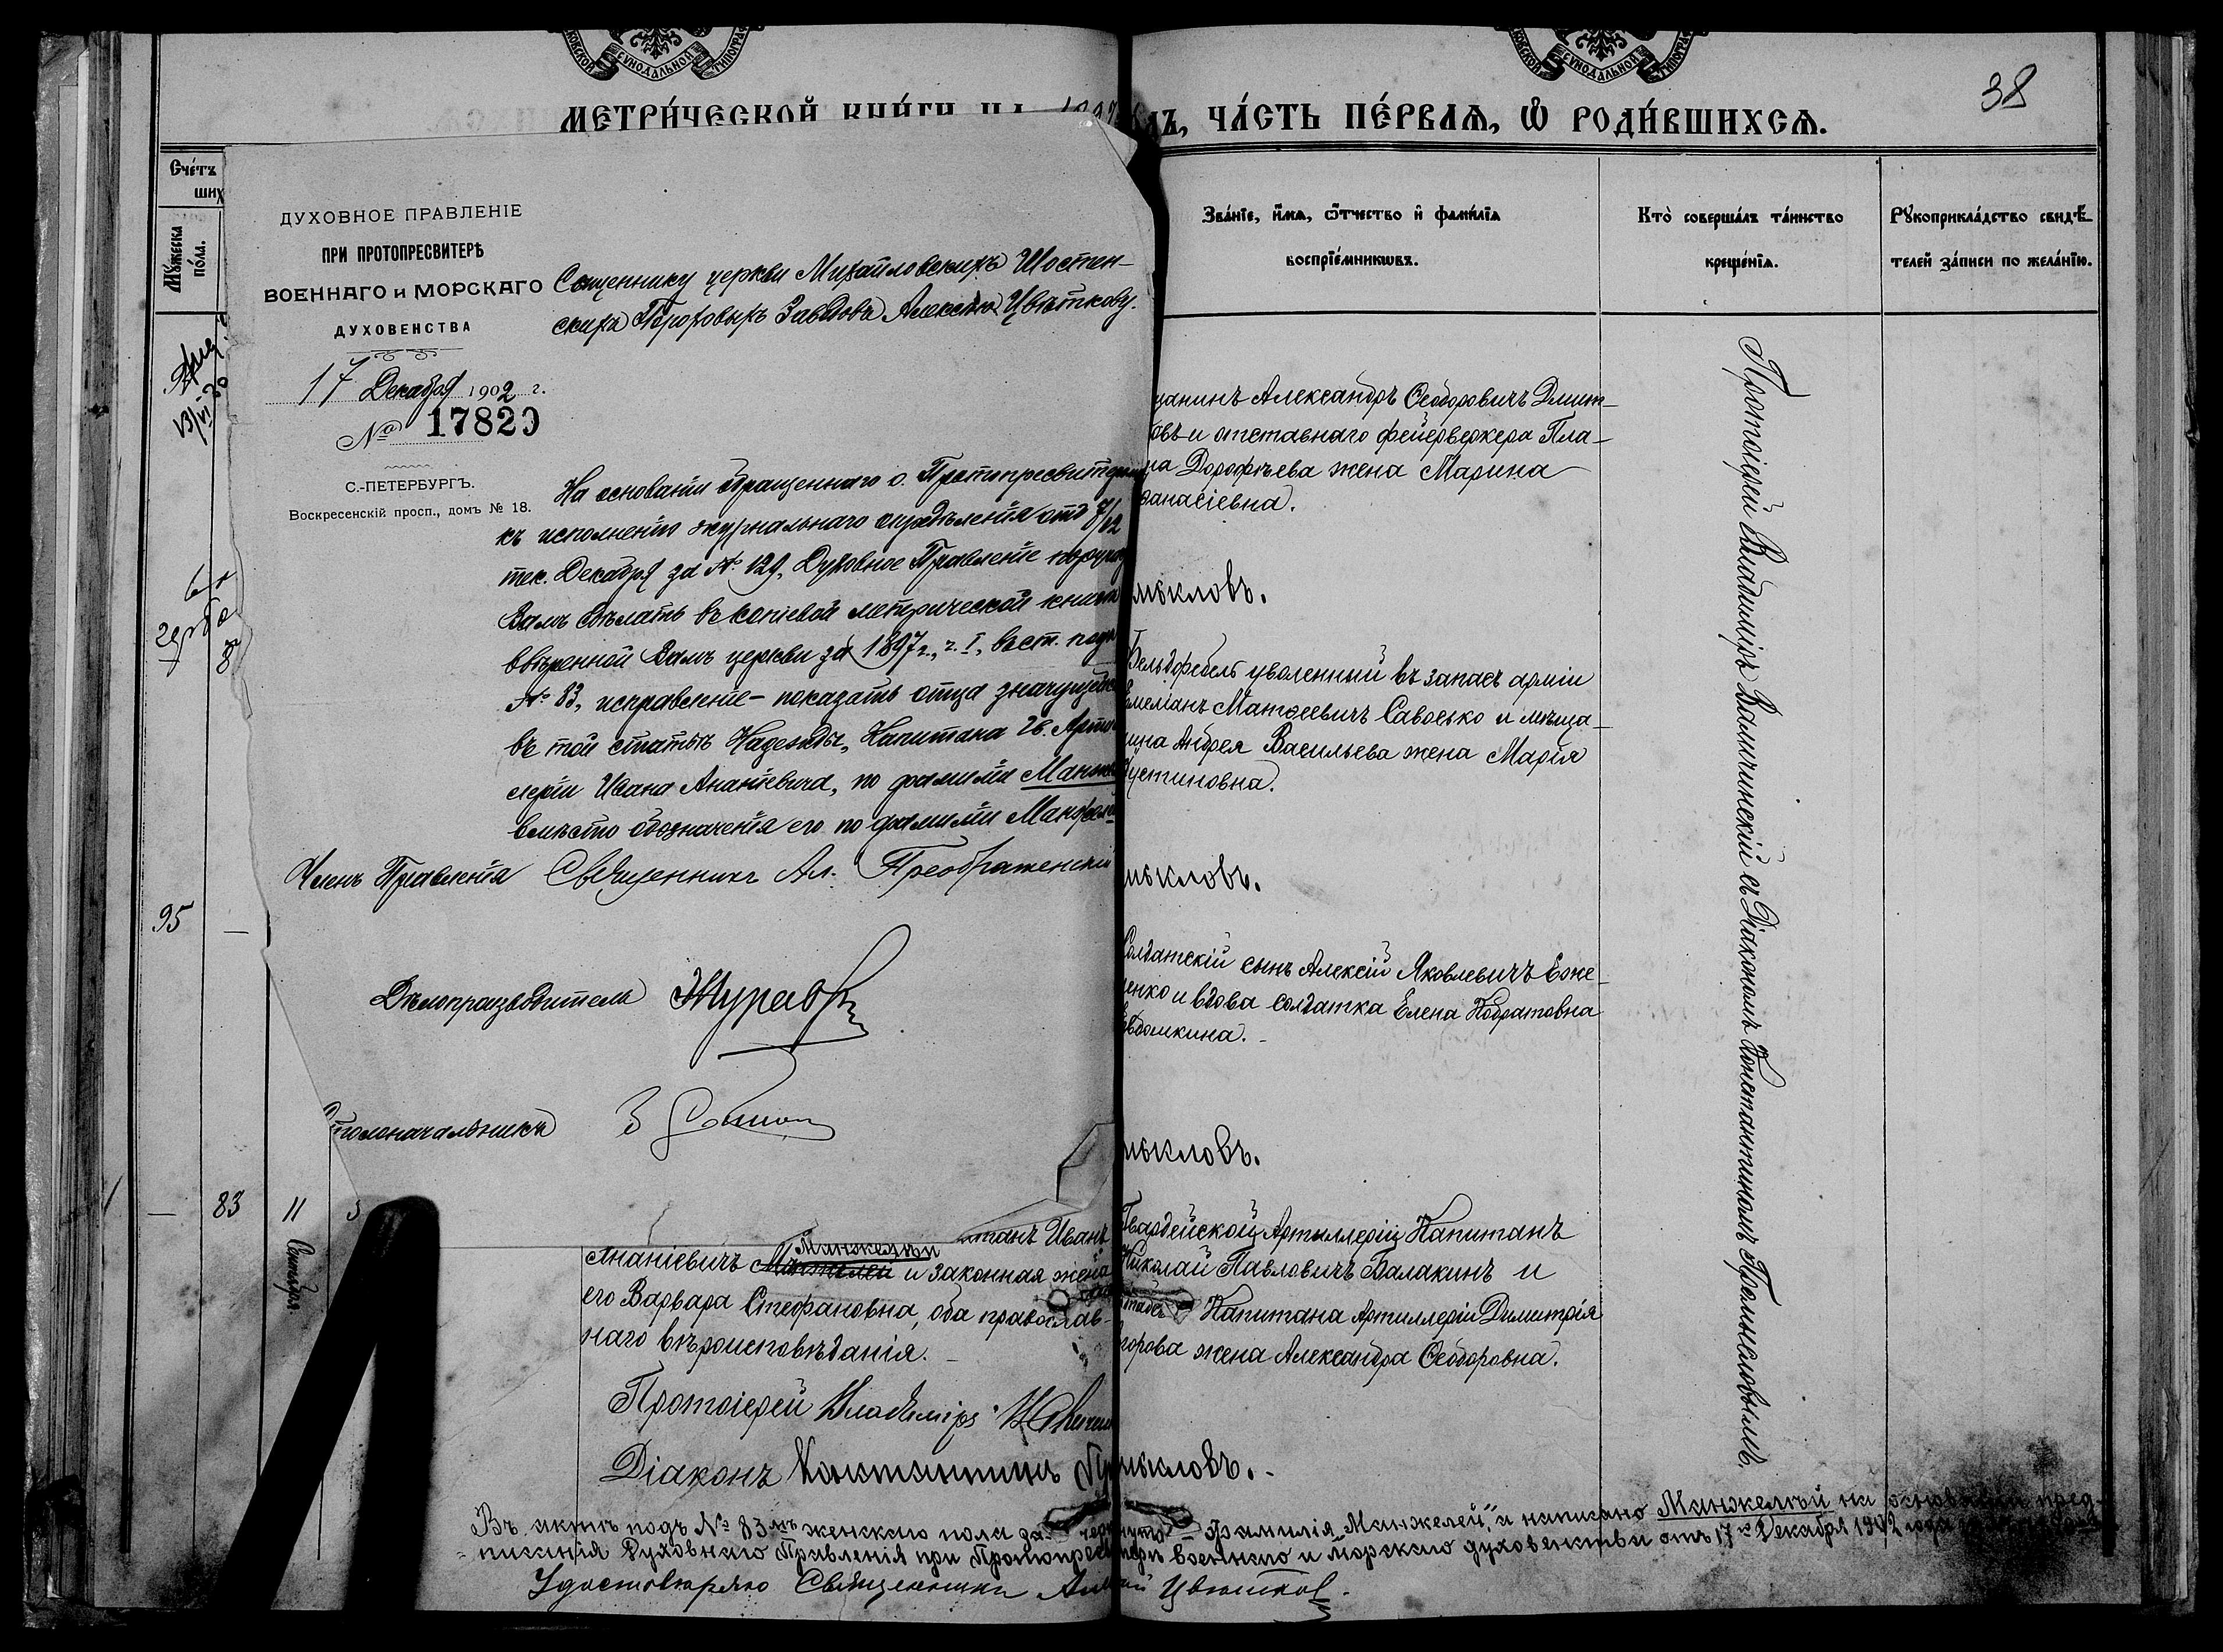 МЕТРИ́ЧЕСКОЙ КНИ́ГИ НА 1897
ДЪ, ЧА́СТЬ ПЕ́РВАѦ, Ѡ РОДИ́ВШИХСѦ.
38
Сче́тъ
ших
Му́жеска
по́ла.
ДУХОВНОЕ ПРАВЛЕНІЕ
ПРИ ПРОТОПРЕСВИТЕРѢ
ВОЕННАГО и МОРСКАГО
ДУХОВЕНСТВА
17 Декабря 1902 г.
№ 17820
С.-ПЕТЕРБУРГЪ.
Воскресенскій просп., домъ № 18.
Священнику церкви Михайловскихъ Шостен-
скихъ Пороховыхъ Заводовъ Алексѣю Цвѣткову.
На основаніи обращеннаго о. Протопресвитеромъ
къ исполненію журнальнаго опредѣленія отъ 7/12
тек. Декабря за № 129, Духовное Правленіе поруча
Вамъ сдѣлать въ копіевой метрической книгѣ
ввѣренной Вамъ церкви за 1897 г., ч. I, въ ст. подъ
№ 83, исправленіе – показать отца значущейся
въ той статьѣ Надежды, Капитана Гв. Арти
леріи Ивана Ананіевича, по фамиліи Манже
вмѣсто обозначенія его по фамиліи Манжел
Членъ Правленія Священникъ Ал. Преображенскій
Дѣлопроизводитель
Столоначальникъ
95 —
— 83 11
Сентября
итанъ Иванъ
Манжелѣй
Ананіевичъ Манжелей и законная жена
его Варвара Стефановна, оба православ-
наго вѣроисповѣданія. –
Протоіерей Владиміръ
Діаконъ Константинъ
Зва́нїе, и́мѧ, ѻ́тчество и҆ фами́лїѧ
воспрїе́мникѡвъ.
Кто̀ соверша́лъ та́инство
креще́нїѧ.
Рꙋкоприкла́дство свидѣ́-
телей за́писи по жела́нїю.
щанинъ Александръ Ѳеодоровичъ Дмит-
овъ и отставнаго фейерверкера Пла-
на Дорофѣева жена Марина
Ѳанасіевна.
мысловъ.
Фельдфебель уволенный въ запасъ арміи
Емеліанъ Матѳеевичъ Савосько и мѣща-
нина Андрея Васильева жена Марія
Іустиновна.
мысловъ.
Солдатскій сынъ Алексій Яковлевичъ Еже-
ченко и вдова солдатка Елена Кодратовна
Евдомкина. –
мысловъ.
Гвардейской Артиллеріи Капитанъ
Николай Павловичъ Балакинъ и
Штабсъ Капитана Артиллеріи Димитрія
горова жена Александра Ѳеодоровна.
мысловъ. –
Протоіерей Владиміръ Валичинскій съ Діакономъ Константиномъ Промысловымъ.
Въ актѣ подъ № 83мъ женскаго пола зачеркнуто – фамилія „Манжелей," и написано Манжелѣй на основаніи пред-
писанія Духовнаго Правленія при Протопресвитерѣ военнаго и морского духовенства отъ 17го Декабря 1902 года
Удостовѣряю Священникъ Алексій Цвѣтков